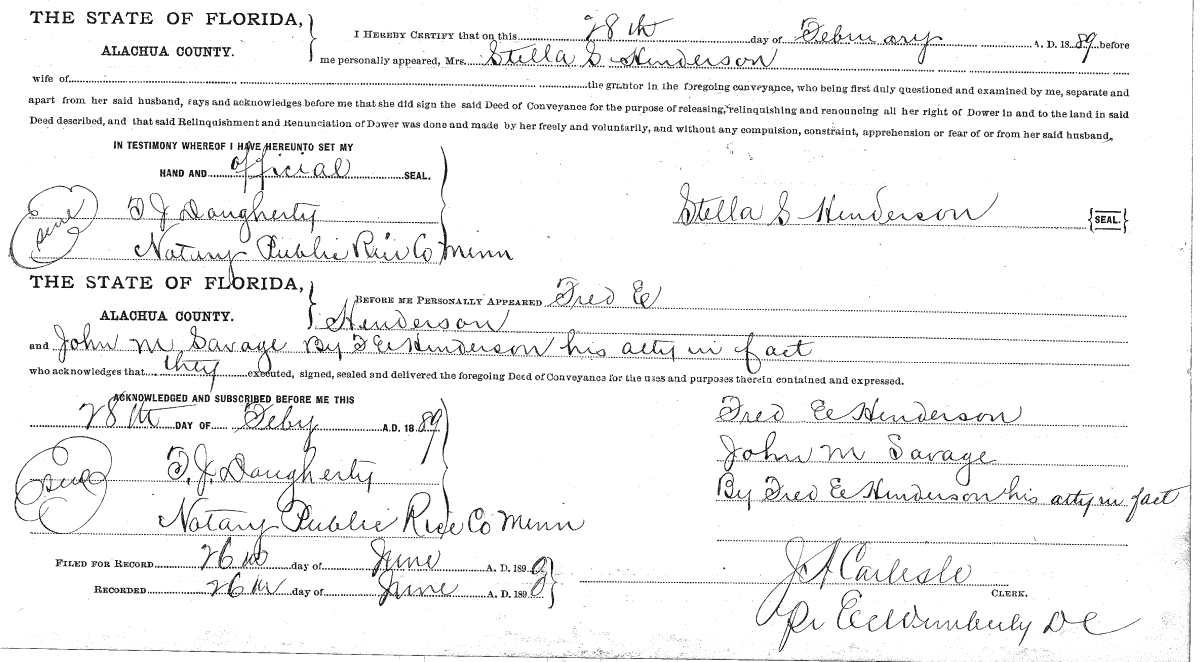 THE STATE OF FLORIDA,
ALACHUA COUNTY.
I HEREBY CERTIFY that on this 28th day of February A. D. 1889 before
me personally appeared, Mrs. Stella S Henderson
wife of the grantor in the foregoing conveyance, who being first duly questioned and examined by me, separate and
apart from her said husband, says and acknowledges before me that she did sign the said Deed of Conveyance for the purpose of releasing, relinquishing and renouncing all her right of Dower in and to the land in said
Deed described, and that said Relinquishment and Renunciation of Dower was done and made by her freely and voluntarily, and without any compulsion, constraint, apprehension or fear of or from her said husband,
IN TESTIMONY WHEREOF I HAVE HEREUNTO SET MY
HAND AND official SEAL.
Seal T J Daugherty
Stella S Henderson {SEAL.}
Notary Public Rice Co Minn
THE STATE OF FLORIDA,
ALACHUA COUNTY.
BEFORE ME PERSONALLY APPEARED Fred E
Henderson
and John M Savage By F E Henderson his atty in fact
who acknowledges that they executed, signed, sealed and delivered the foregoing Deed of Conveyance for the uses and purposes therein contained and expressed.
ACKNOWLEDGED AND SUBSCRIBED BEFORE ME THIS
28th DAY OF Feby A.D. 1889
Seal T. J. Daugherty
Notary Public Rice Co Minn
Fred E Henderson
John M Savage
By Fred E Henderson his atty in fact
FILED FOR RECORD 26th day of June A. D. 189
RECORDED 26th day of June A. D. 189
J A Carlisle
CLERK.
Pr Wimberly D C